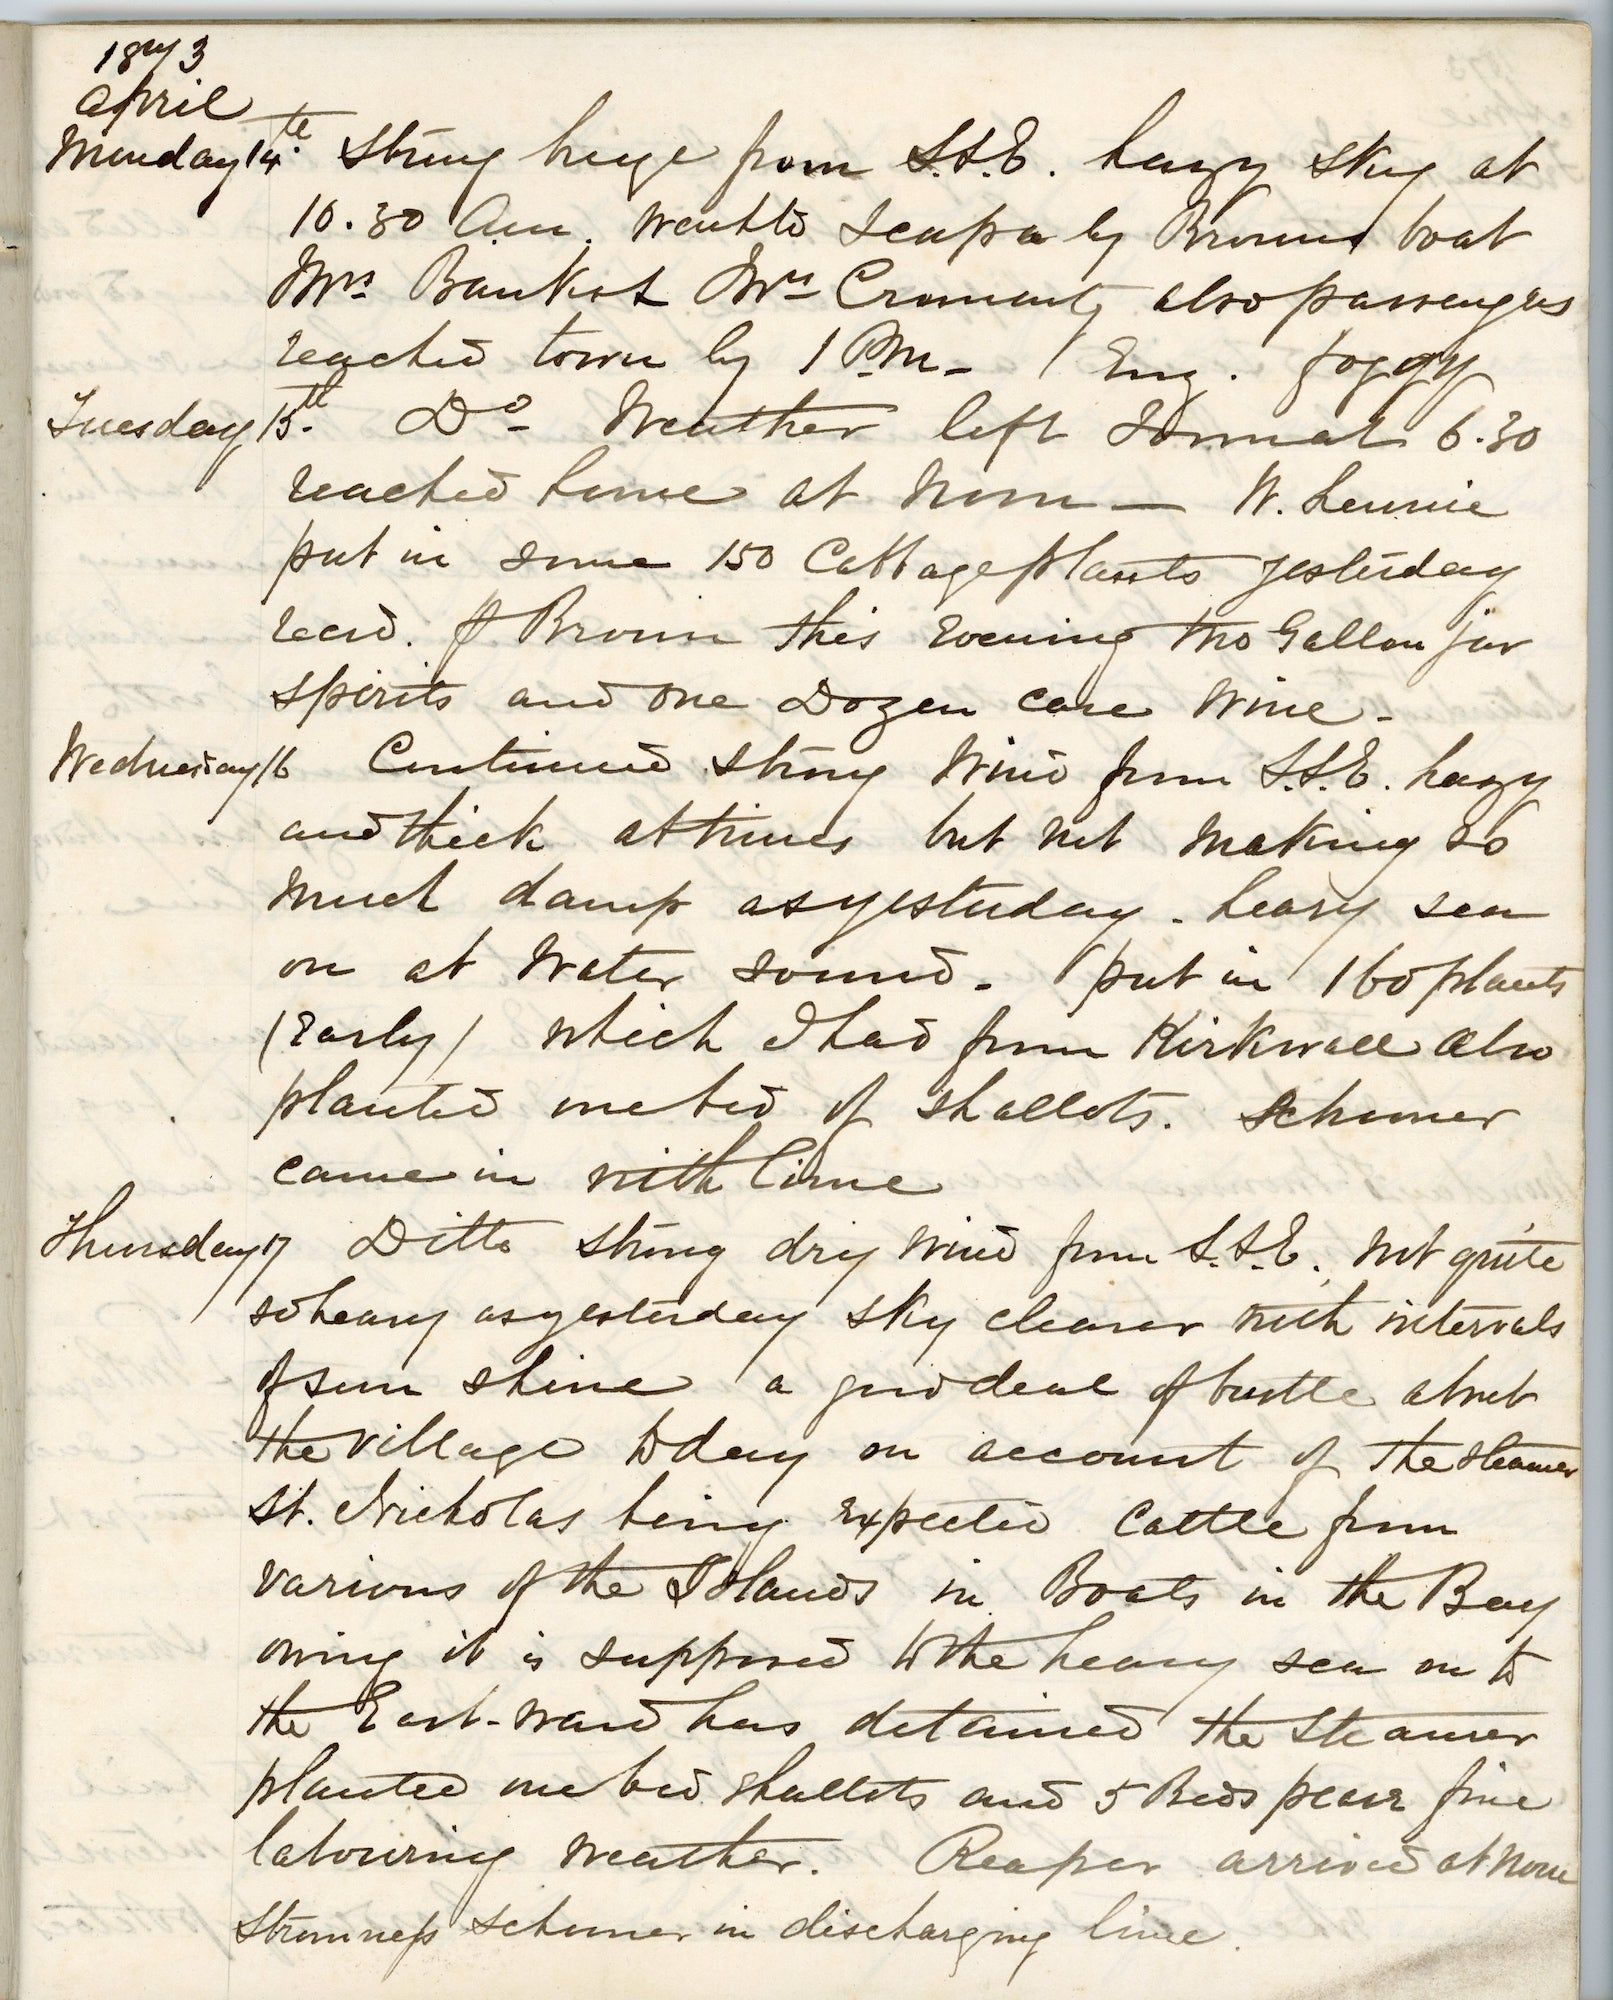 1873
April
Monday 14th Strong breeze from S.S.E. hazy sky at
10.30 A.m. went to Scapa by Browns boat
Mrs Bankes & Mrs Cromarty also passengers
reached town by 1 P.M - Evng. foggy
Tuesday 15th Do - Weather left Town at 6.30
reached home at Noon — W. Lennie
put in some 150 Cabbage plants yesterday
recd. pr Brown this Evening two Gallon jar
spirits and one Dozen case Wine -
Wednesday 16 Continued strong Wind from S.S.E. hazy
and thick at times but not making so
much damp as yesterday - heavy sea
on at Water sound - put in 160 plants
(Early) which I had from Kirkwall also
planted one bed of shallots. Schooner
came in with lime
Thursday 17 Ditto strong dry Wind from S.S.E. not quite
so heavy as yesterday sky clearer with intervals
of sun shine a good deal of bustle about
the village to day on account of the steamer
St. Nicholas being expected Cattle from
various of the Islands in Boats in the Bay
owing it is supposed to the heavy sea on to
the East-ward has detained the Steamer
planted one bed shallots and 5 Beds pease fine
labouring weather. Reaper arrived at Noon
Stromness Schooner in discharging lime.